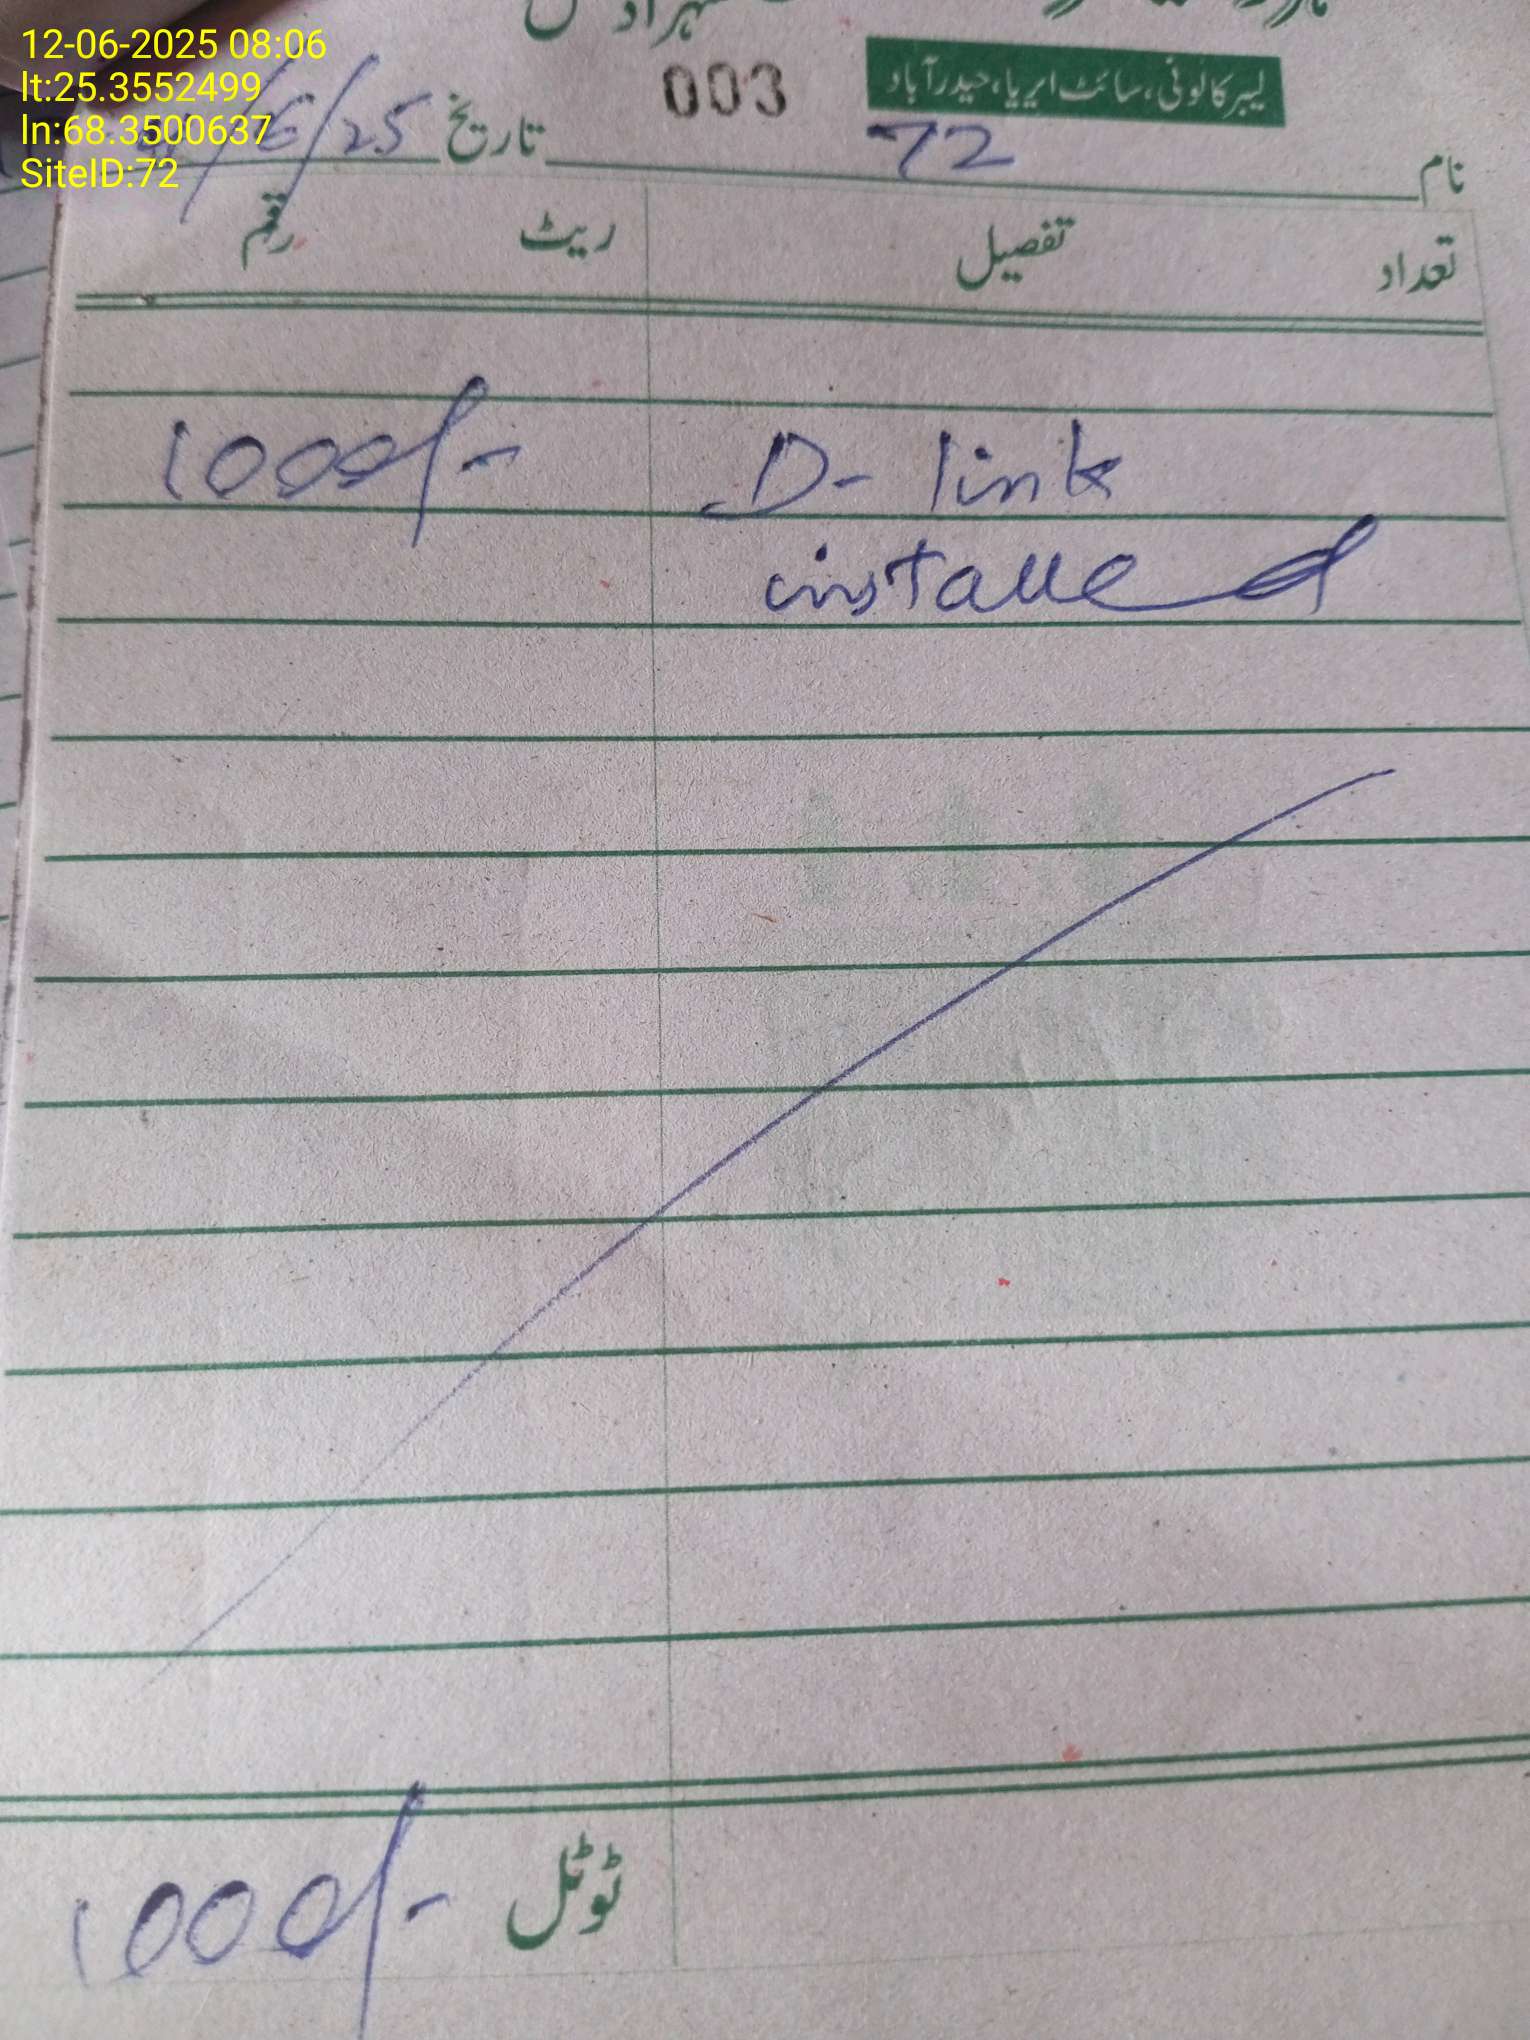 12-06-2025 08:06
lt:25.3552499
ln:68.3500637
SiteID:72
003
لیبر کالونی، سائٹ ایریا، حیدرآباد
نام 72 تاریخ /6/25
تعداد تفصیل ریٹ رقم
D- link 1000/-
installed
ٹوٹل 1000/-